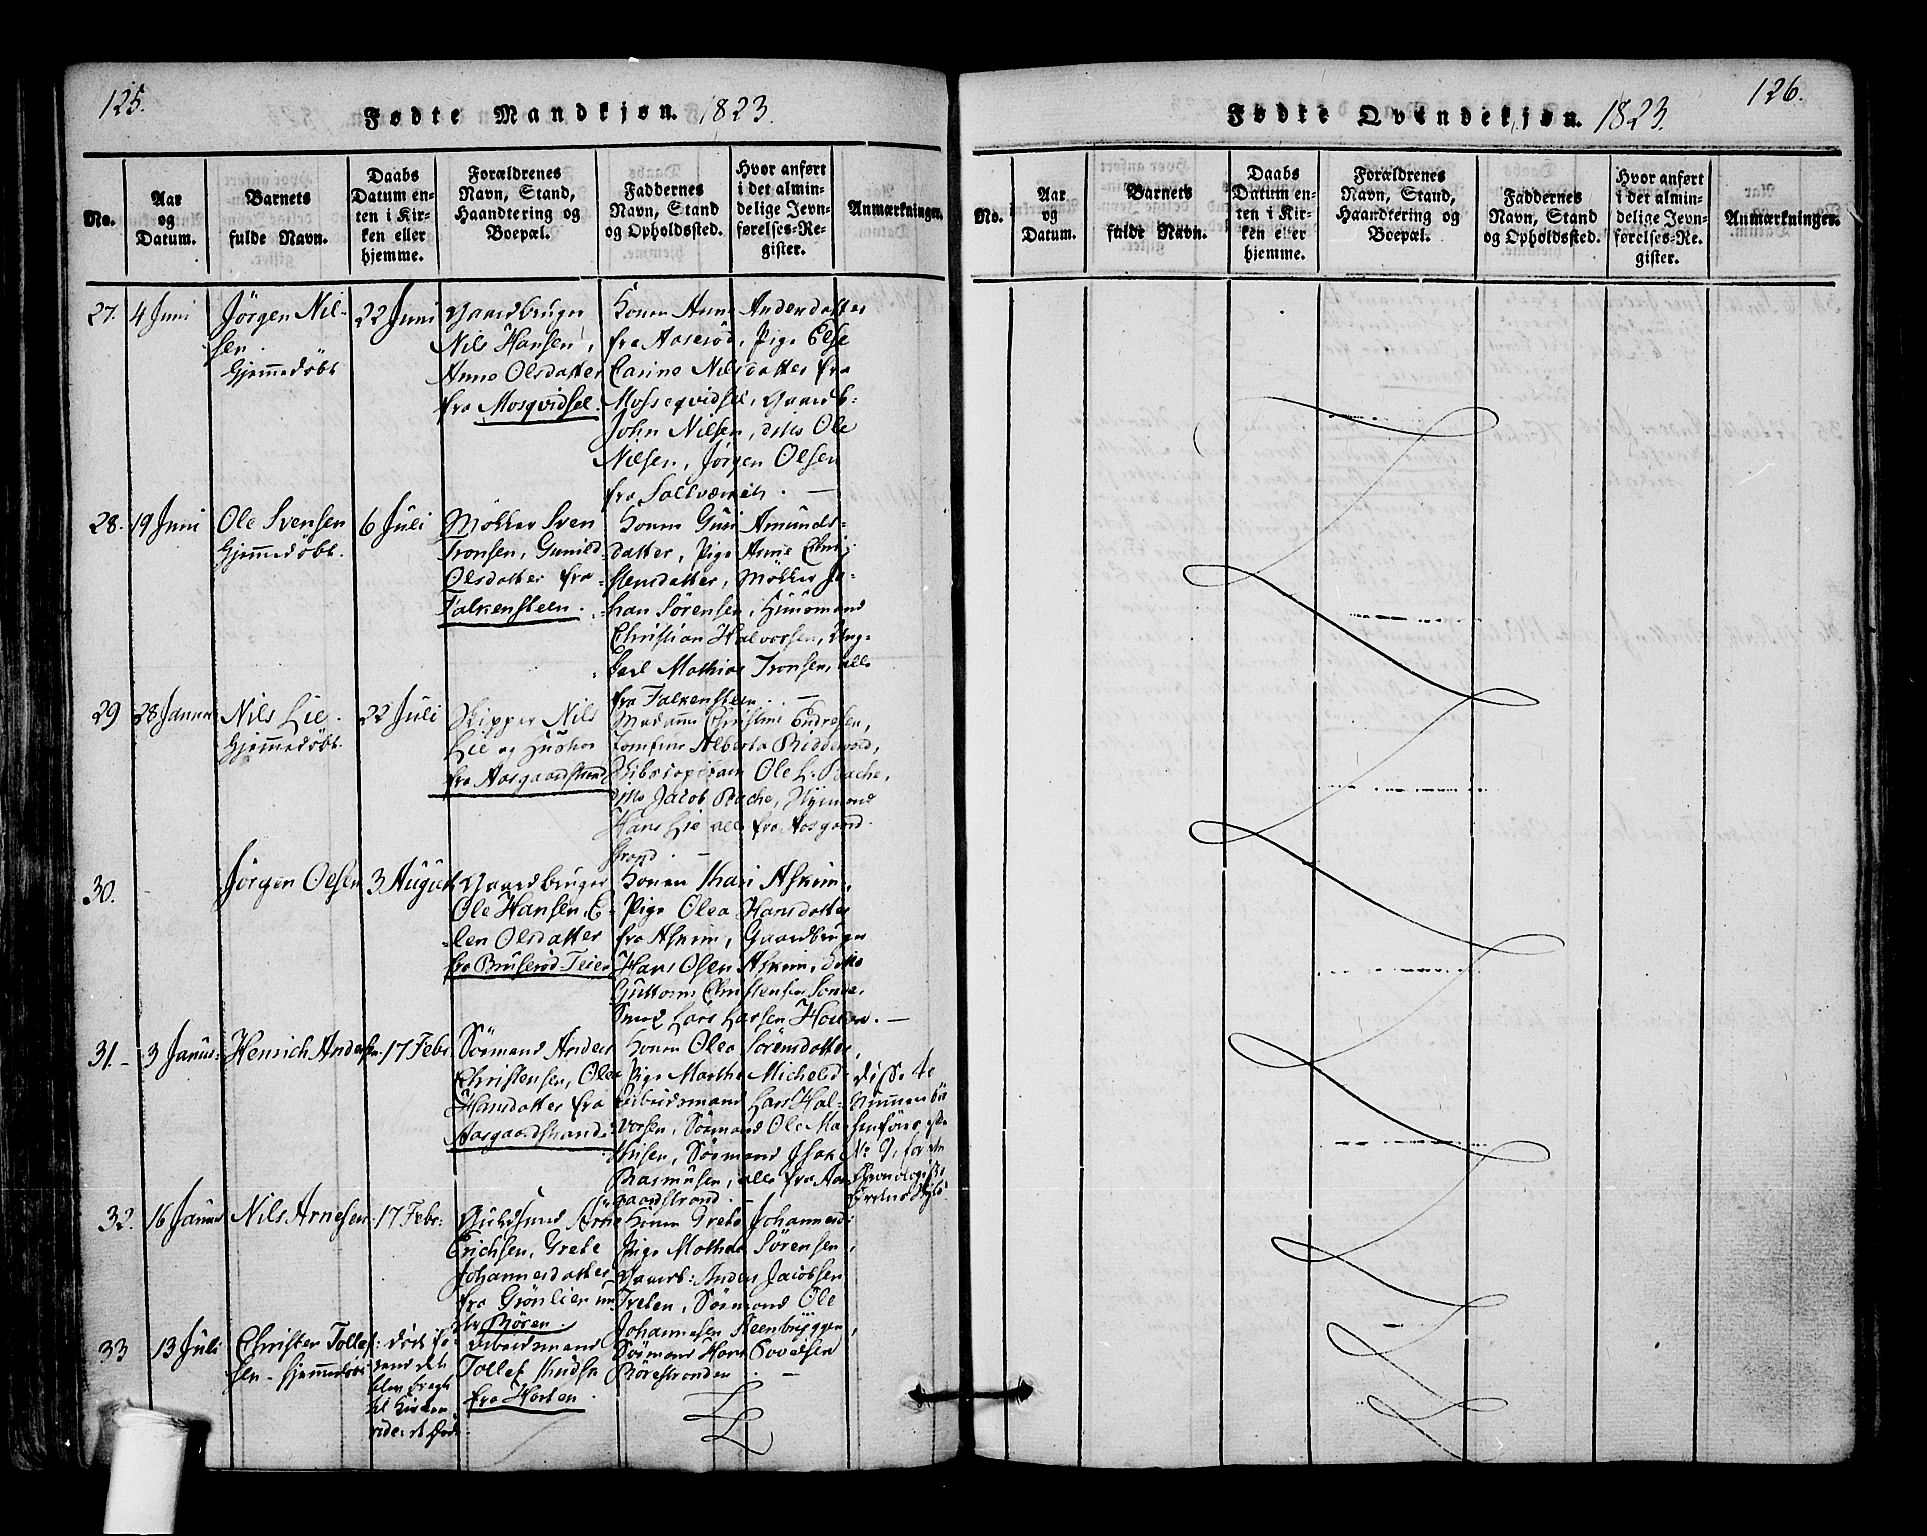 125.
Fødte Mandkjøn. 1823.
No.
Aar
og
Datum.
Barnets
fulde Navn.
Daabs
Datum en-
ten i Kir-
ken eller
hjemme.
Forældrenes
Navn, Stand,
Haandtering og
Boepæl.
Faddernes
Navn, Stand
og Opholdssted.
Hvor anført
i det almin-
delige Jevn-
førelses-Re-
gister.
Anmærkninger.
27. 4 Juni
Jörgen Nil-
sen.
Hjemmedöbt
22 Juni
Gaardbruger
Nils Hansen,
Anne Olsdatter
fra Mosqvidsel.
Konen Anne Andersdatter
fra Aaseröd, Pige Else
Carine Nilsdatter fra
Mosseqvidsel, Gaardb.
John Nilsen, ditto Ole
Nilsen, Jörgen Olsen
fra
28. 19 Juni
Ole Svensen
Hjemmedöbt.
6 Juli
Möller Sven
Tronsen, Gunild
Olsdatter fra
Falkensteen.
Konen Guri Amunds-
datter, Pige Anne Chri-
stensdatter, Möller Jo-
han Sörensen, Huusmand
Christian Halvorsen, Ung-
karl Mathias Tronsen, alle
fra Falkensteen.
29 28 Januar
Nils Lie.
Hjemmedöbt.
22 Juli
Skipper Nils
Lie og Hustro
fra Aasgaardstrand
Madame Christine Endresen,
Jomfrue Alberta Riddervold,
Skibscapitain Ole L. Bache,
ditto Jacob Bache, Styrmand
Hans Lie alle fra Aasgaard-
strand.
30.
Jörgen Olsen
3 August
Gaardbruger
Ole Hansen, E-
len Olsdatter
fra Bruseröd-Teier
Konen Kari Askim,
Pige Olea Hansdatter
fra Askim, Gaardbruger
Hans Olsen Askim, ditto
Guttorm Christensen
Lars Larsen
31. 3 Januar
Henrich Andersen
17 Febr.
Sömand Anders
Christensen, Olea
Hansdatter fra
Aasgaardstrand
Konen Olea Sörensdatter,
Pige Marthe Michelsd.
Arbeidsmand Lars Hal-
vorsen, Sömand Ole Mar-
thisen, Sömand Isak
Rasmusen, alle fra Aas-
gaardstrand.
Disse to
No 9, for den
32. 16 Januar
Nils Arnesen
17 Febr.
Erichsen, Grete
Johannesdatter
fra Grönlien un-
der Rören.
Konen Grete Johannesd:
Pige Mathea Sörensen,
Gaardb: Anders Jacobsen
Sömand Ole
Johannesen Steenbryggen,
Sömand Hans Povelsen
Rörestranden
33 13 Juli
Christen Tollef-
sen - Hjemmedöbt
död
Arbeidsmand
Tollef Knudsen
fra Horten.
126.
Fødte Qvindekjøn. 1823.
No.
Aar
og
Datum.
Barnets
fulde Navn.
Daabs
Datum en-
ten i Kir-
ken eller
hjemme.
Forældrenes
Navn, Stand,
Haandtering og
Boepæl.
Faddernes
Navn, Stand
og Opholdssted.
Hvor anført
i det almin-
delige Jevn-
førelses-Re-
gister.
Anmærkninger.